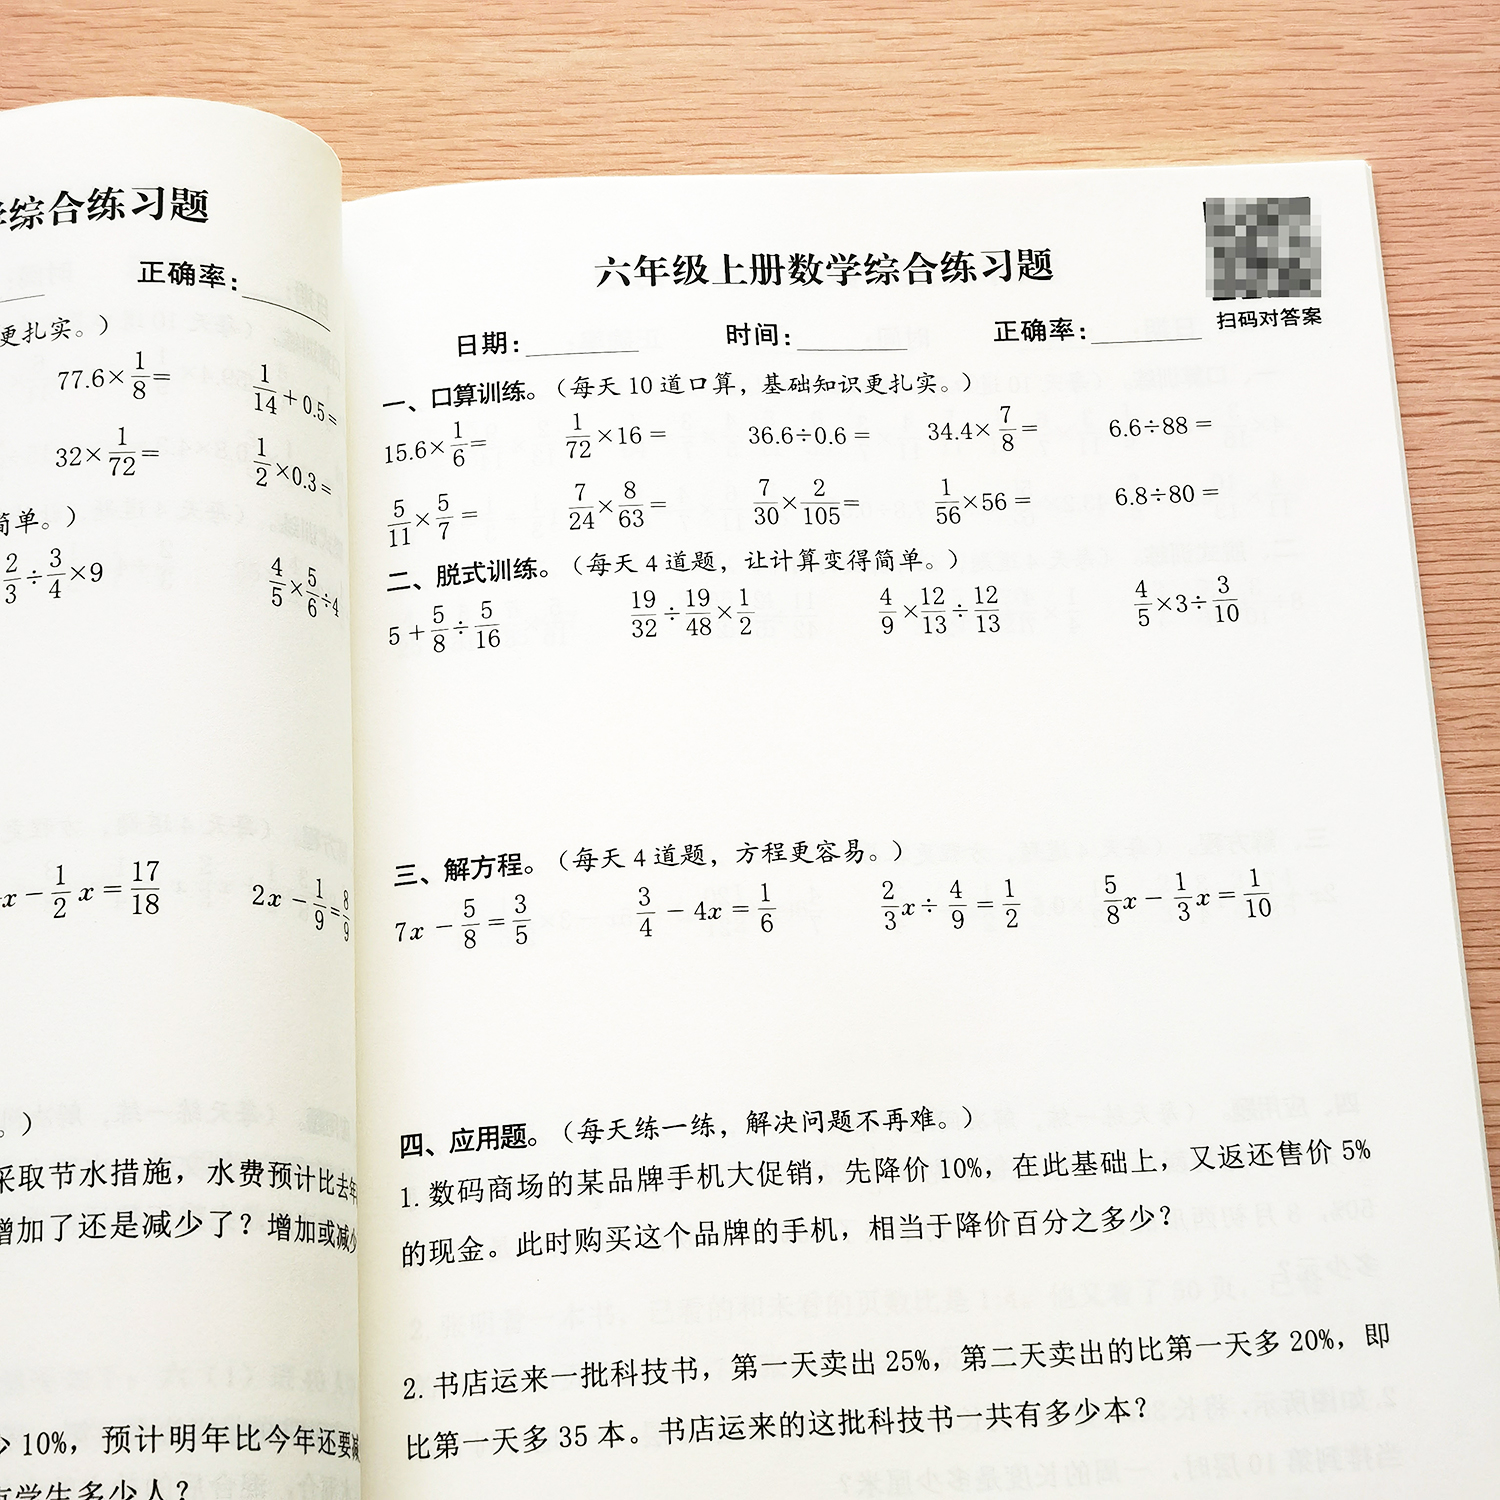 学综合练习题
正确率：
更扎实。）
77.6×1/8= 1/14+0.5=
32×1/72= 1/2×0.3=
简单。）
2/3÷3/4×9 4/5×5/6÷4
x-1/2x=17/18 2x-1/9=8/9
。）
采取节水措施，水费预计比去年
增加了还是减少了？增加或减少
少10%，预计明年比今年还要减
有学生多少人？
六年级上册数学综合练习题
扫码对答案
日期：________ 时间：________ 正确率：________
一、口算训练。（每天 10 道口算，基础知识更扎实。）
15.6×1/6= 1/72×16= 36.6÷0.6= 34.4×7/8= 6.6÷88=
5/11×5/7= 7/24×8/63= 7/30×2/105= 1/56×56= 6.8÷80=
二、脱式训练。（每天 4 道题，让计算变得简单。）
5+5/8÷5/16 19/32÷19/48×1/2 4/9×12/13÷12/13 4/5×3÷3/10
三、解方程。（每天 4 道题，方程更容易。）
7x-5/8=3/5 3/4-4x=1/6 2/3x÷4/9=1/2 5/8x-1/3x=1/10
四、应用题。（每天练一练，解决问题不再难。）
1. 数码商场的某品牌手机大促销，先降价 10%，在此基础上，又返还售价 5%
的现金。此时购买这个品牌的手机，相当于降价百分之多少？
2. 书店运来一批科技书，第一天卖出 25%，第二天卖出的比第一天多 20%，即
比第一天多 35 本。书店运来的这批科技书一共有多少本？